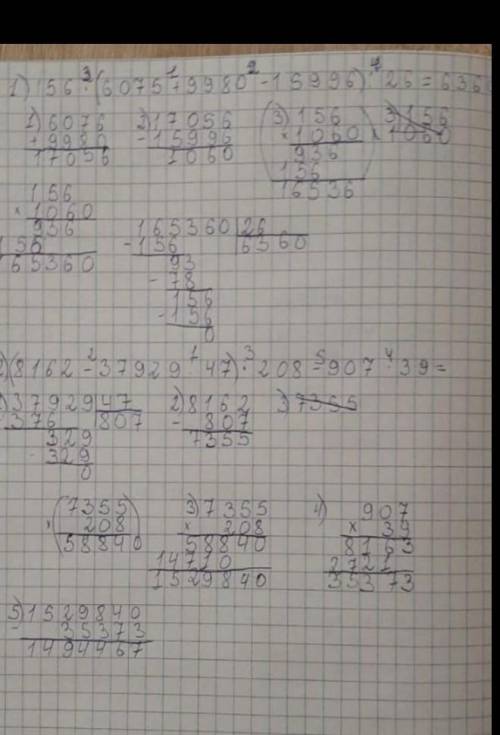 1) 156 · (6075 + 9980 - 15996) : 26 = 636
3 1 2 4
1) 6076
+ 9980
17056
2) 17056
- 15996
1060
(3) 156
× 1060
936
156
16536)
3) 156
× 1060
156
× 1060
936
156
165360
165360 | 26
6360
- 156
93
- 78
156
- 156
0
2) (8162 - 37929 : 47) · 208 - 907 · 39 =
2 1 3 5 4
37929 | 47
807
- 376
329
- 329
0
2) 8162
- 807
7355
3) 7355
(7355
× 208
58840)
3) 7355
× 208
58840
14710
1529840
4) 907
× 39
8163
2721
35373
5) 1529840
- 35373
1494467